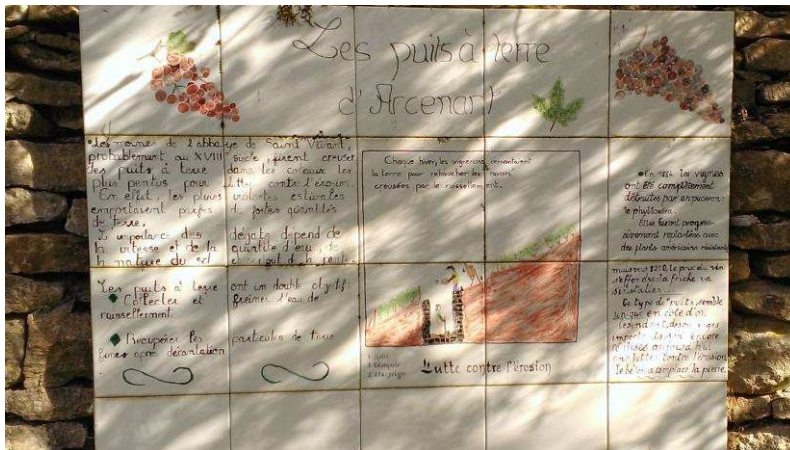 Les puits à terre
d'Arcenant
Les moines de l'abbaye de Saint Vivant,
probablement au XVIII siècle, firent creuser
des puits à terre dans les coteaux les
plus pentus pour lutter contre l'érosion.
En effet, les pluies violentes estivales
emportaient parfois de fortes quantités
de terre.
L'importance des dégats depend de
la vitesse et de la quantité d'eau, de
la nature du sol et de la pente.
Les puits à terre ont un double objectif
Collecter et freiner l'eau de
ruissellement.
Recupérer les particules de terre
fines après décantation
Chaque hiver, les vignerons remontaient
la terre pour reboucher les ravines
creusées par le ruissellement.
Lutte contre l'érosion
les vignes
ont été complètement
détruites par un puceron
le phylloxéra.
Elles furent progres-
sivement replantées avec
des plants américains résistants
le prix du vin
s'effondre, la friche va
s'installer...
Ce type de puits, semble
unique en côte d'or.
Cependant, des ouvrages
importants sont encore
réalisés aujourd'hui
pour lutter contre l'érosion,
le béton a remplacé la pierre.